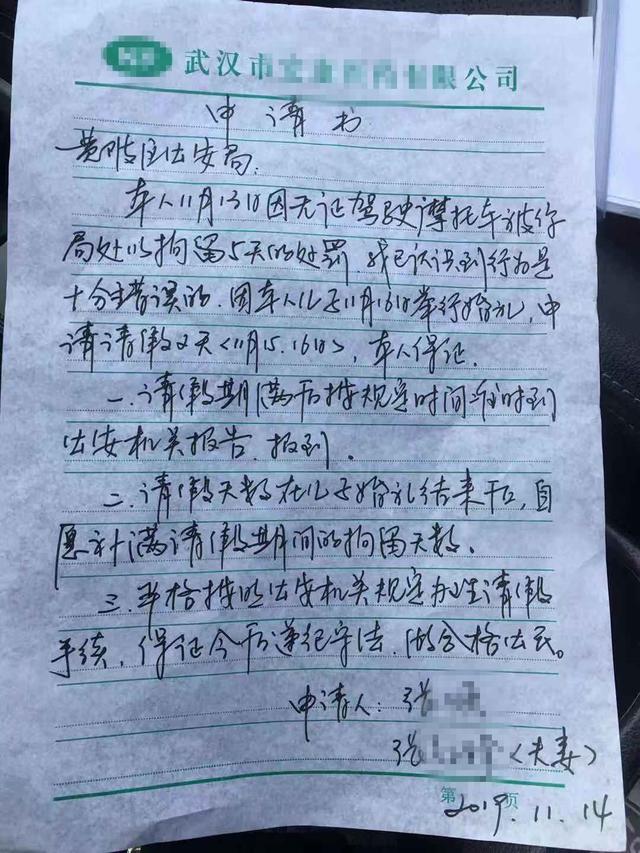 武汉市 有限公司
申请书
黄陂区公安局:
本人11月13日因无证驾驶摩托车被你
局处以拘留5天的处罚,我已认识到行为是
十分错误的.因本人儿子11月16日举行婚礼,申
请请假2天<11月15.16日>,本人保证.
一.请假期满后按规定时间准时到
公安机关报告.报到。
二.请假天数在儿子婚礼结束后,自
愿补满请假期间的拘留天数。
三.严格按照公安机关规定办理请假
手续,保证今后遵纪守法,做合格公民。
申请人:张
张 (夫妻)
第 页
2019.11.14